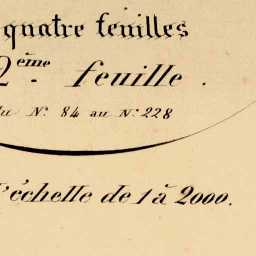 quatre feuilles
2ème - feuille.
du N° 84 au N° 228
l'échelle de 1 à 2000.